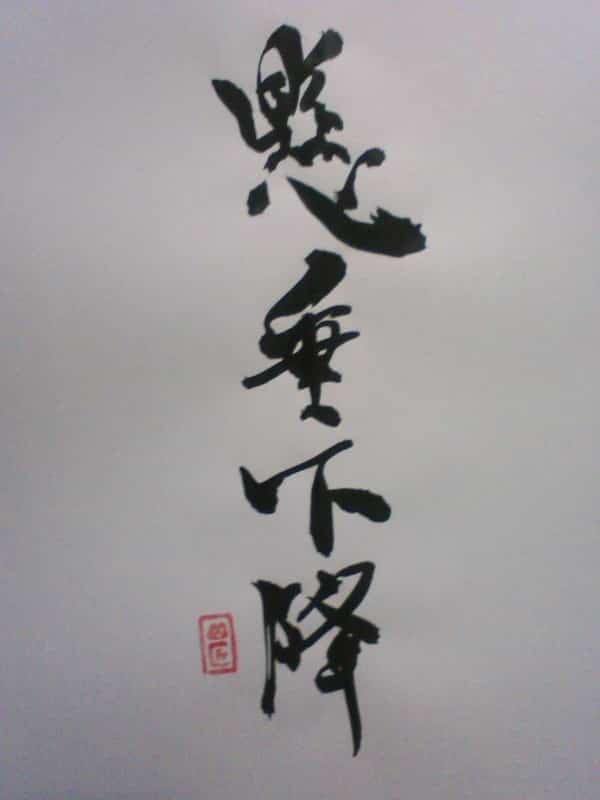 懸垂下降